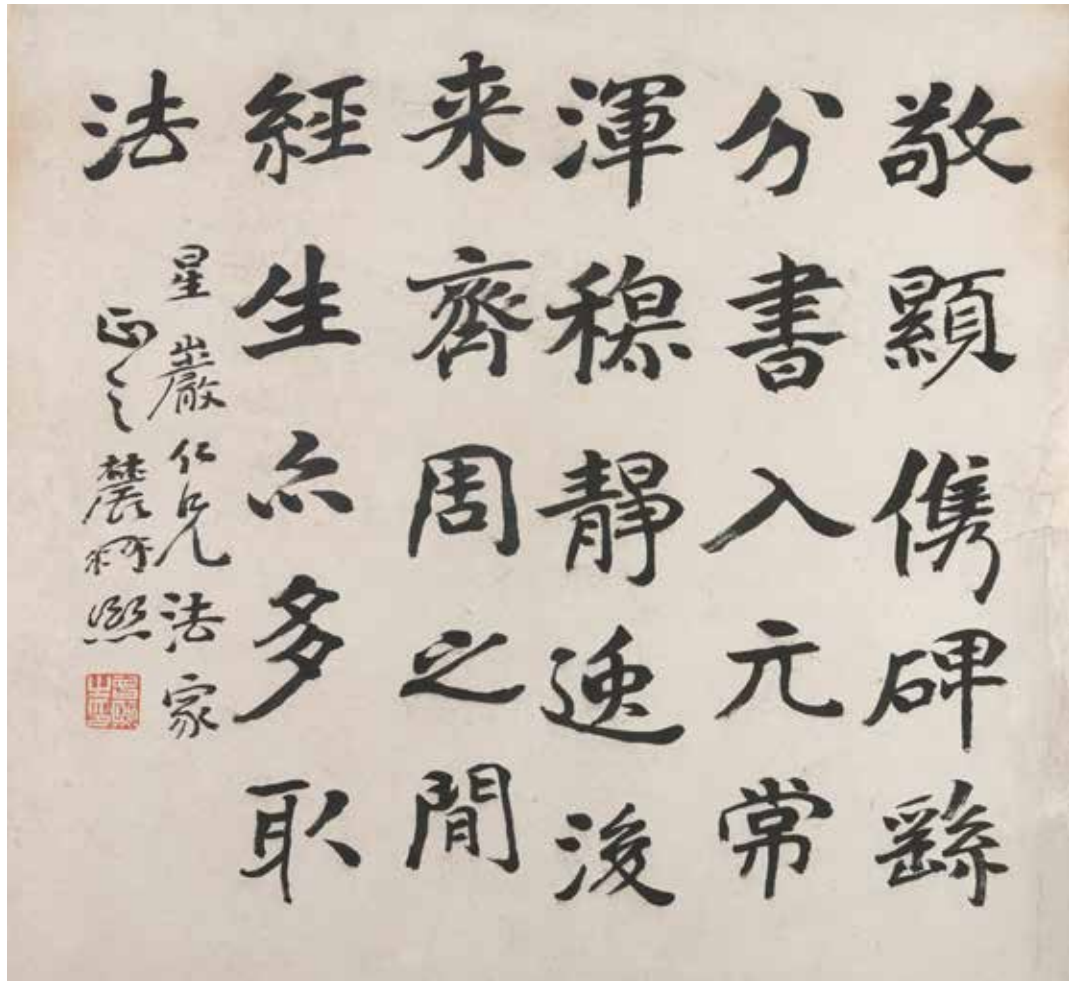 敬顯儁碑繇
分書入元常
渾穆靜逸後
来齊周之閒
經生亦多取
法
星巖仁兄法家
正之農髯熙